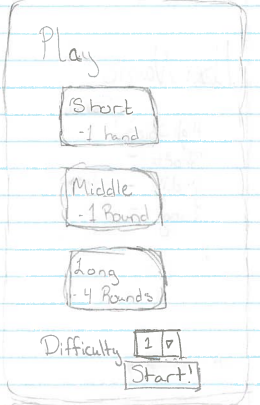 Play
Short
-1 hand
Middle
-1 Round
Long
-4 Rounds
Difficulty 1
Start!